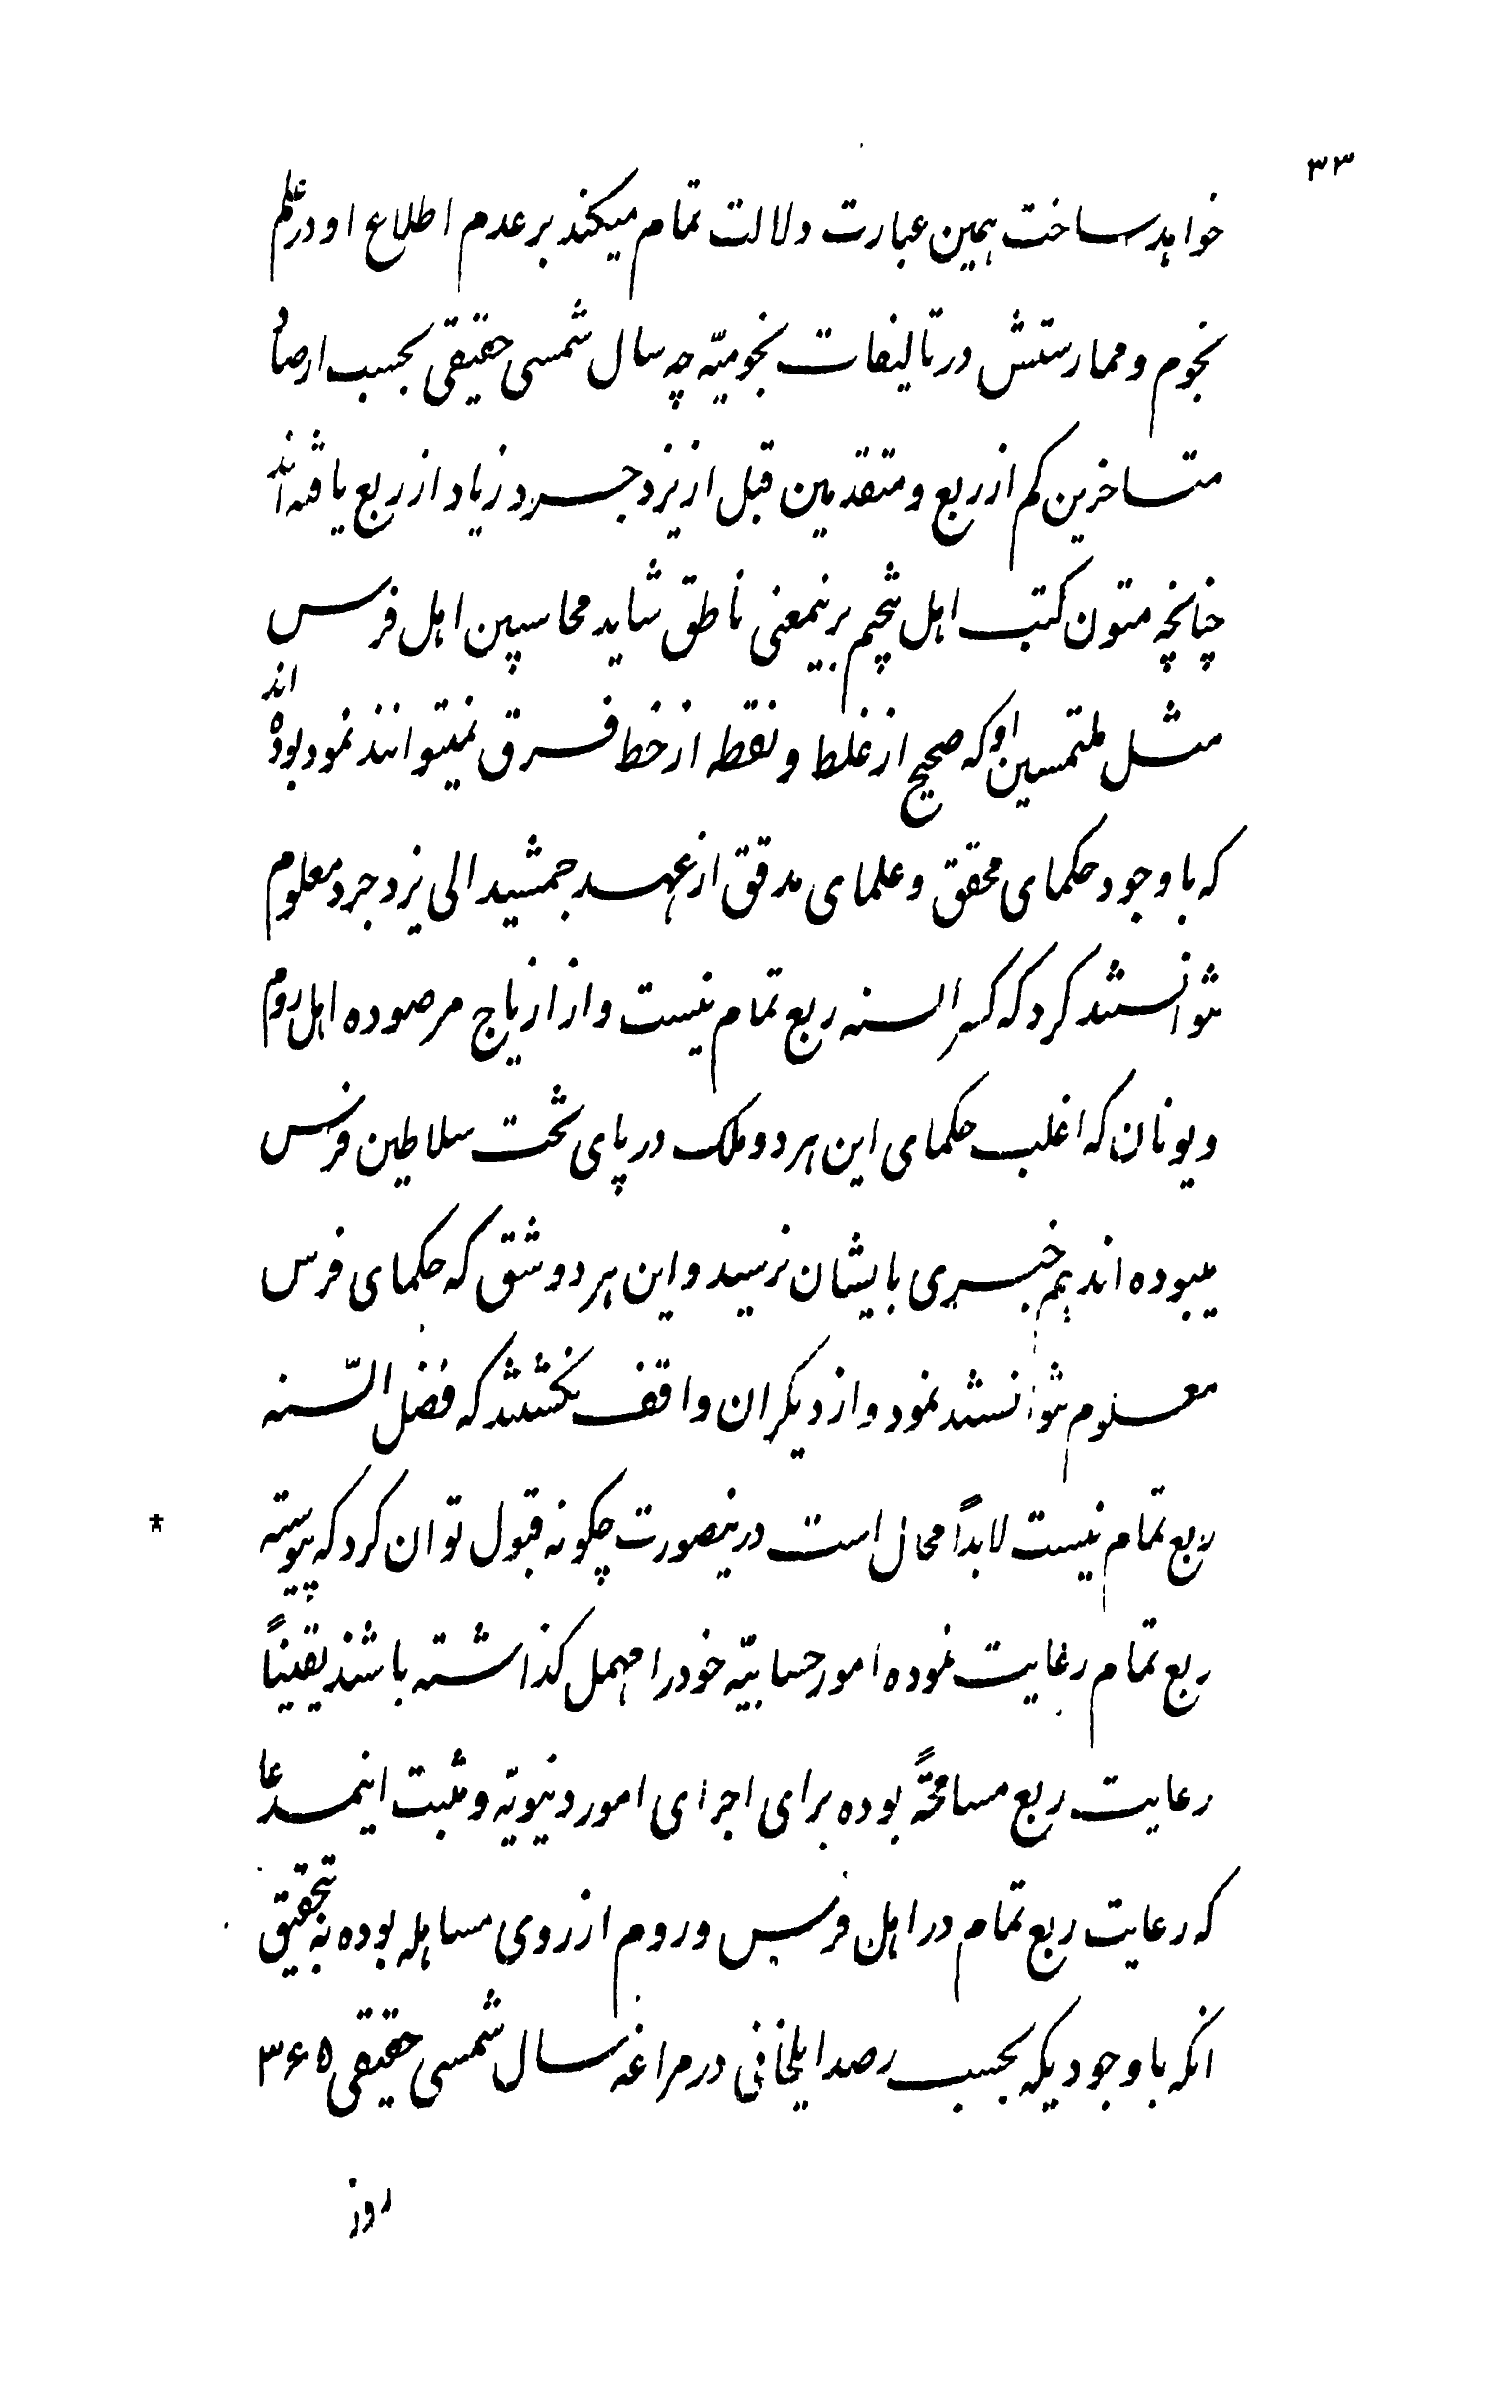 ۳۳
خواهد ساخت همین عبارت دلالت تمام میکند بر عدم اطلاع او در علم
نجوم و ممارستش در تالیفات نجومیّه چه سال شمسی حقیقی بحسب ارصاد
متاخرین کم از ربع و متقدمین قبل از یزدجرد زیاد از ربع یافته اند
چنانچه متون کتب اهل تنجیم برینمعنی ناطق شاید محاسبین اهل فرس
مثل ملتمسین او که صحیح از غلط و نقطه از خط فرق نمیتوانند نمود بوده اند
که با وجود حکمای محقق و علمای مدقق از عهد جمشید الی یزدجرد معلوم
نتوانستند کرد که کسر السنه ربع تمام نیست و از ازیاج مرصوده اهل روم
و یونان که اغلب حکمای این هر دو ملک در پای تخت سلاطین فرس
میبوده اند هم خبری بایشان نرسید و این هر دو شق که حکمای فرس
معلوم نتوانستند نمود و از دیگران واقف نگشتند که فضل السّنه
ربع تمام نیست لابداً محال است درینصورت چگونه قبول توان کرد که پیوسته
*
ربع تمام رعایت نموده امور حسابیّه خود را مهمل گذاشته باشند یقیناً
رعایت ربع مسامحةً بوده برای اجرای امور دنیویّه و مثبت اینمدعا
که رعایت ربع تمام در اهل فرس و روم از روی مساهله بوده نه تحقیق
انکه با وجودیکه بحسب رصد ایلخانی در مراغه سال شمسی حقیقی ۳۶۵
روز